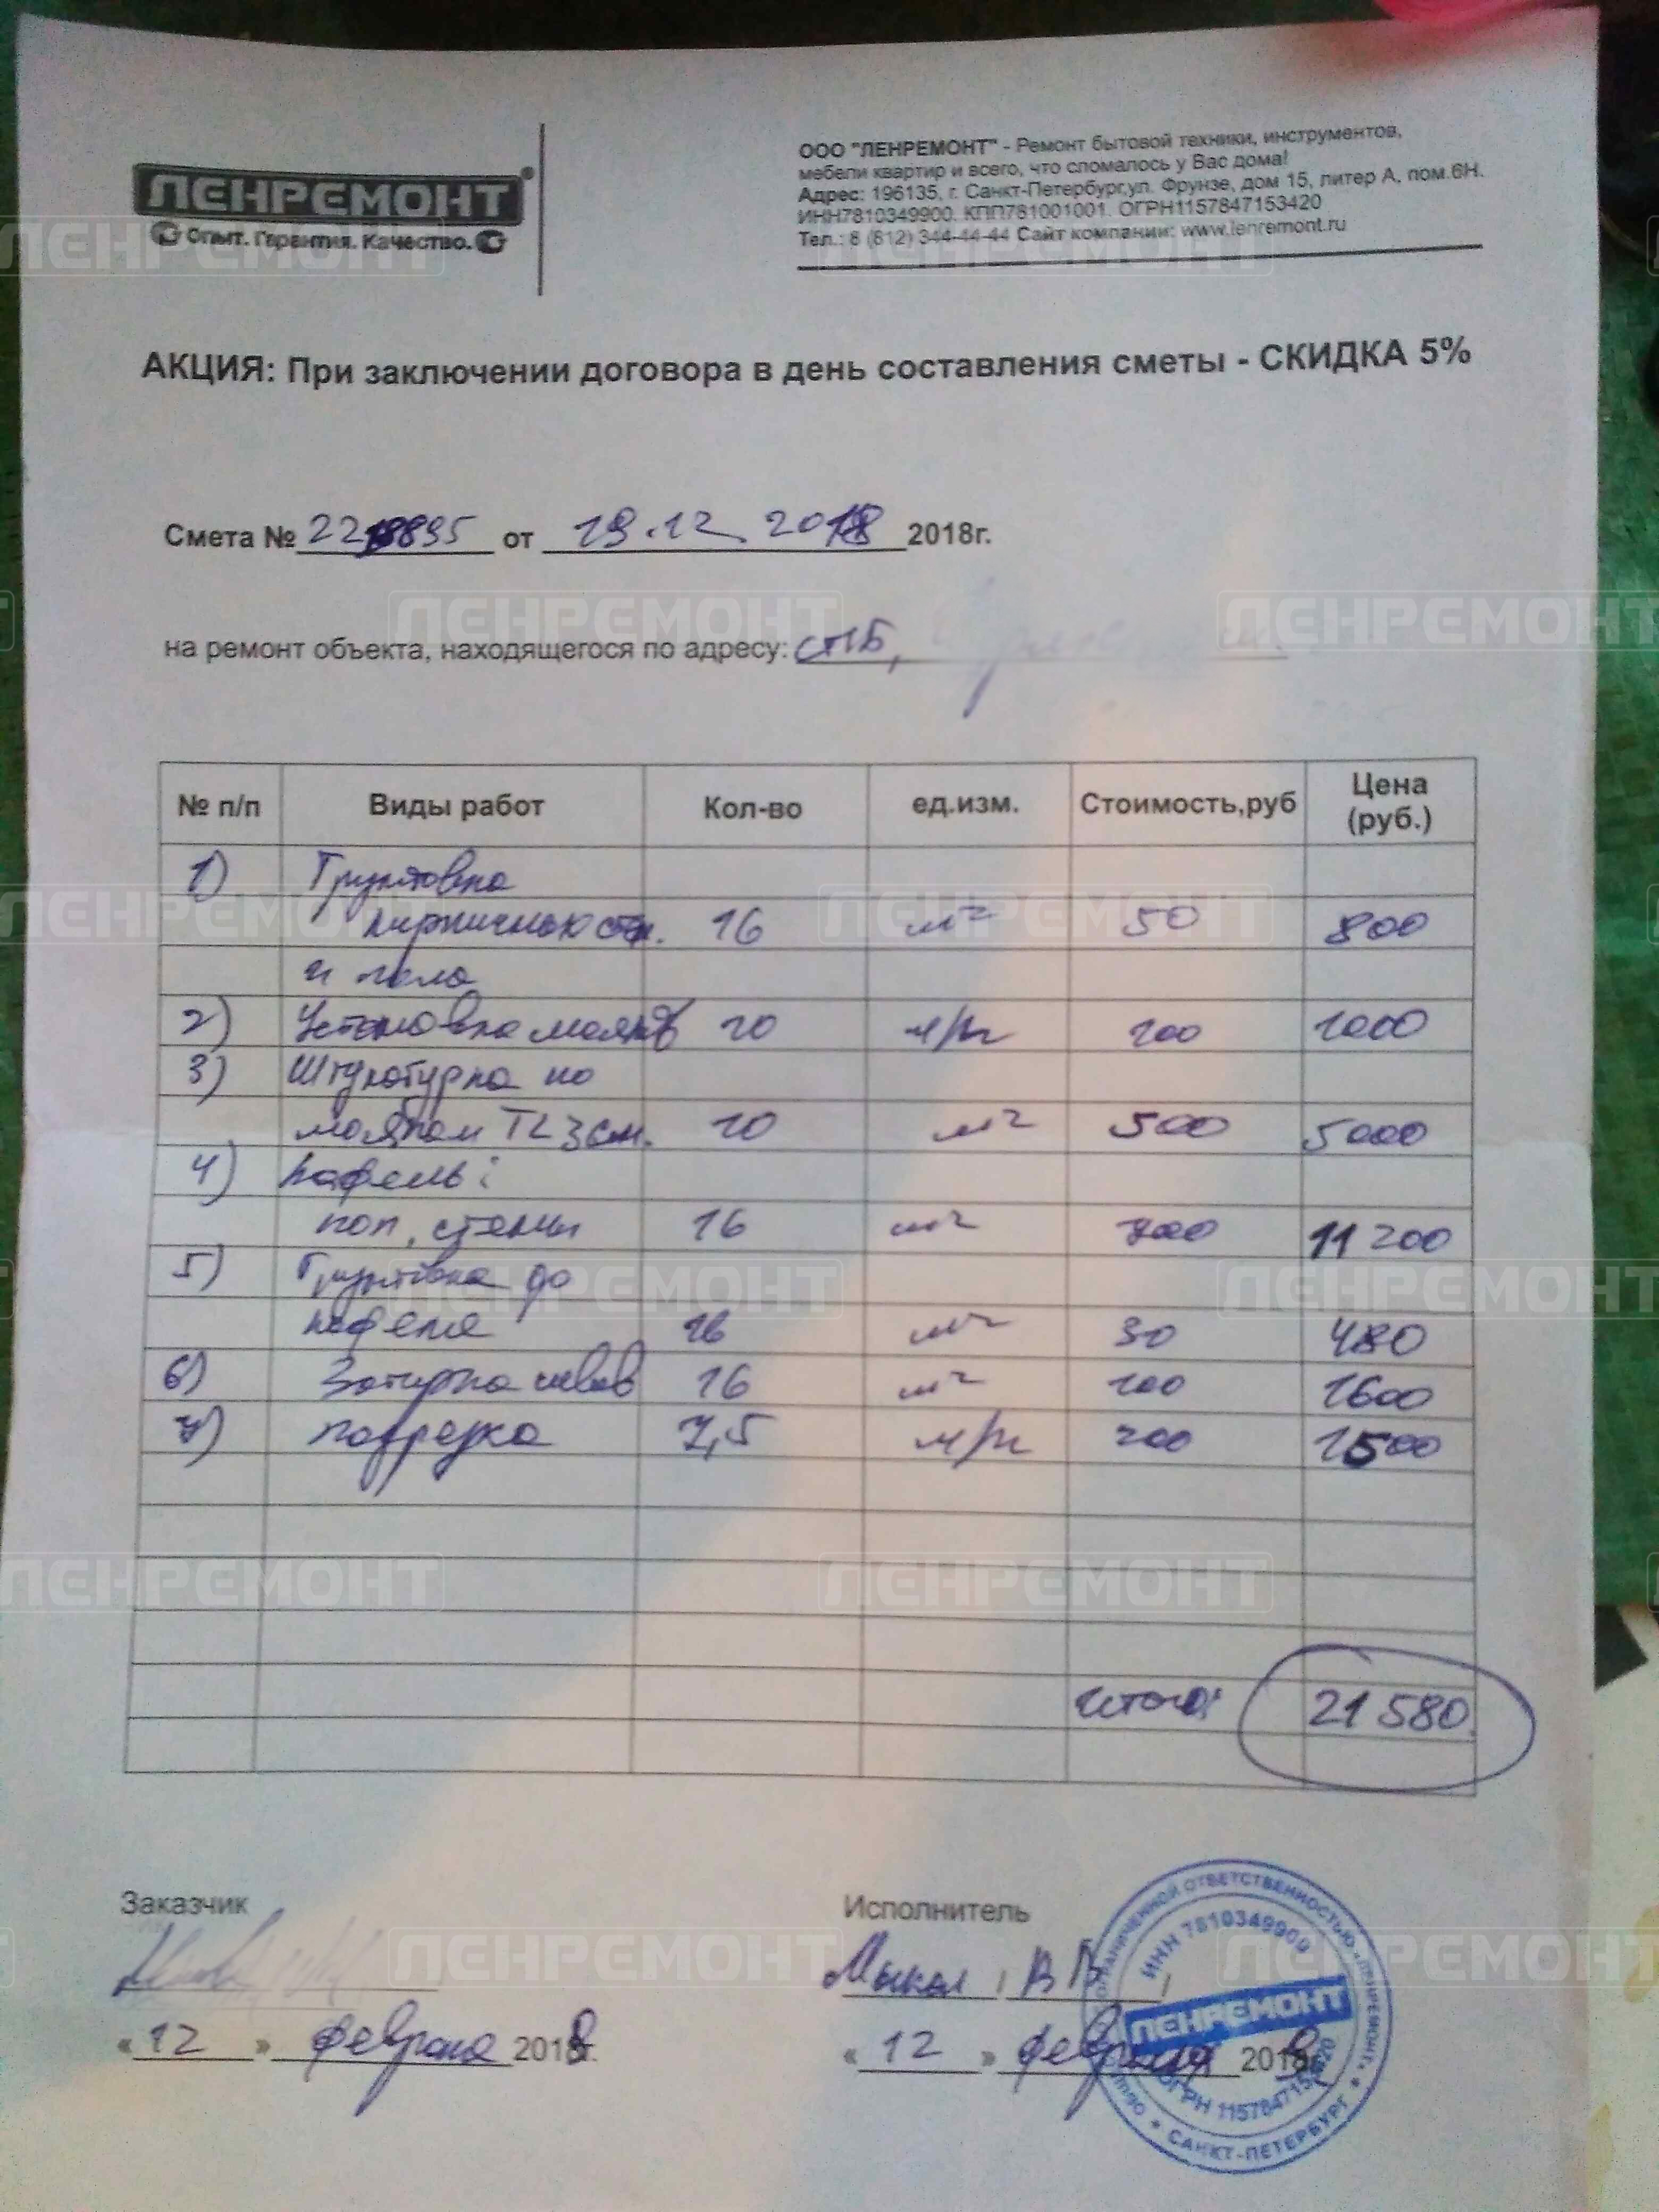 ЛЕНРЕМОНТ®
Опыт. Гарантия. Качество.
ООО "ЛЕНРЕМОНТ" - Ремонт бытовой техники, инструментов,
мебели квартир и всего, что сломалось у Вас дома!
Адрес: 196135, г. Санкт-Петербург,ул. Фрунзе, дом 15, литер А, пом.6Н.
ИНН7810349900. КПП781001001. ОГРН1157847153420
Тел.: 8 (812) 344-44-44 Сайт компании: www.lenremont.ru
АКЦИЯ: При заключении договора в день составления сметы - СКИДКА 5%
Смета № от 19.12.2018 2018г.
на ремонт объекта, находящегося по адресу: СПБ,
№ п/п Виды работ Кол-во ед.изм. Стоимость,руб Цена (руб.)
1) Грунтовка
кирпичных стен. 16 м² 50 800
и пола
2) Установка маяков 10 м/п 100 1000
3) Штукатурка по
маякам TL 3 см. 10 м² 500 5000
4) Кафель:
пол, стены 16 м² 700 11 200
5) Грунтовка до
кафеля 16 м² 30 480
6) Затирка швов 16 м² 100 1600
7) подрезка 7,5 м/п 200 1500
Итого: 21 580.
Заказчик Исполнитель
Мыкал В П
« 12 » февраля 2018г. « 12 » февраля 2018г.
ОГРАНИЧЕННОЙ ОТВЕТСТВЕННОСТЬЮ «ЛЕНРЕМОНТ»
ИНН 7810349900
ЛЕНРЕМОНТ
ОГРН 1157847153420
САНКТ-ПЕТЕРБУРГ